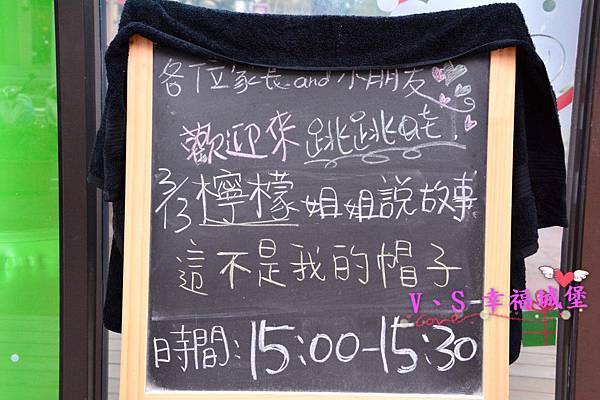 各位家長and小朋友
歡迎來跳跳蛙!
3/3檸檬姐姐說故事
這不是我的帽子
V、S幸福城堡
Love
時間:15:00-15:30